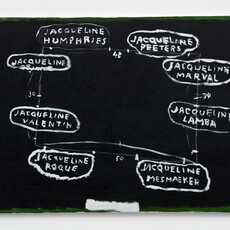 JACQUELINE
HUMPHRIES
JACQUELINE
PEETERS
48
JACQUELINE
JACQUELINE
MARVAL
39
JACQUELINE
VALENTIN
JACQUELINE
LAMBA
JACQUELINE
ROQUE
50
JACQUELINE
MESMAEKER